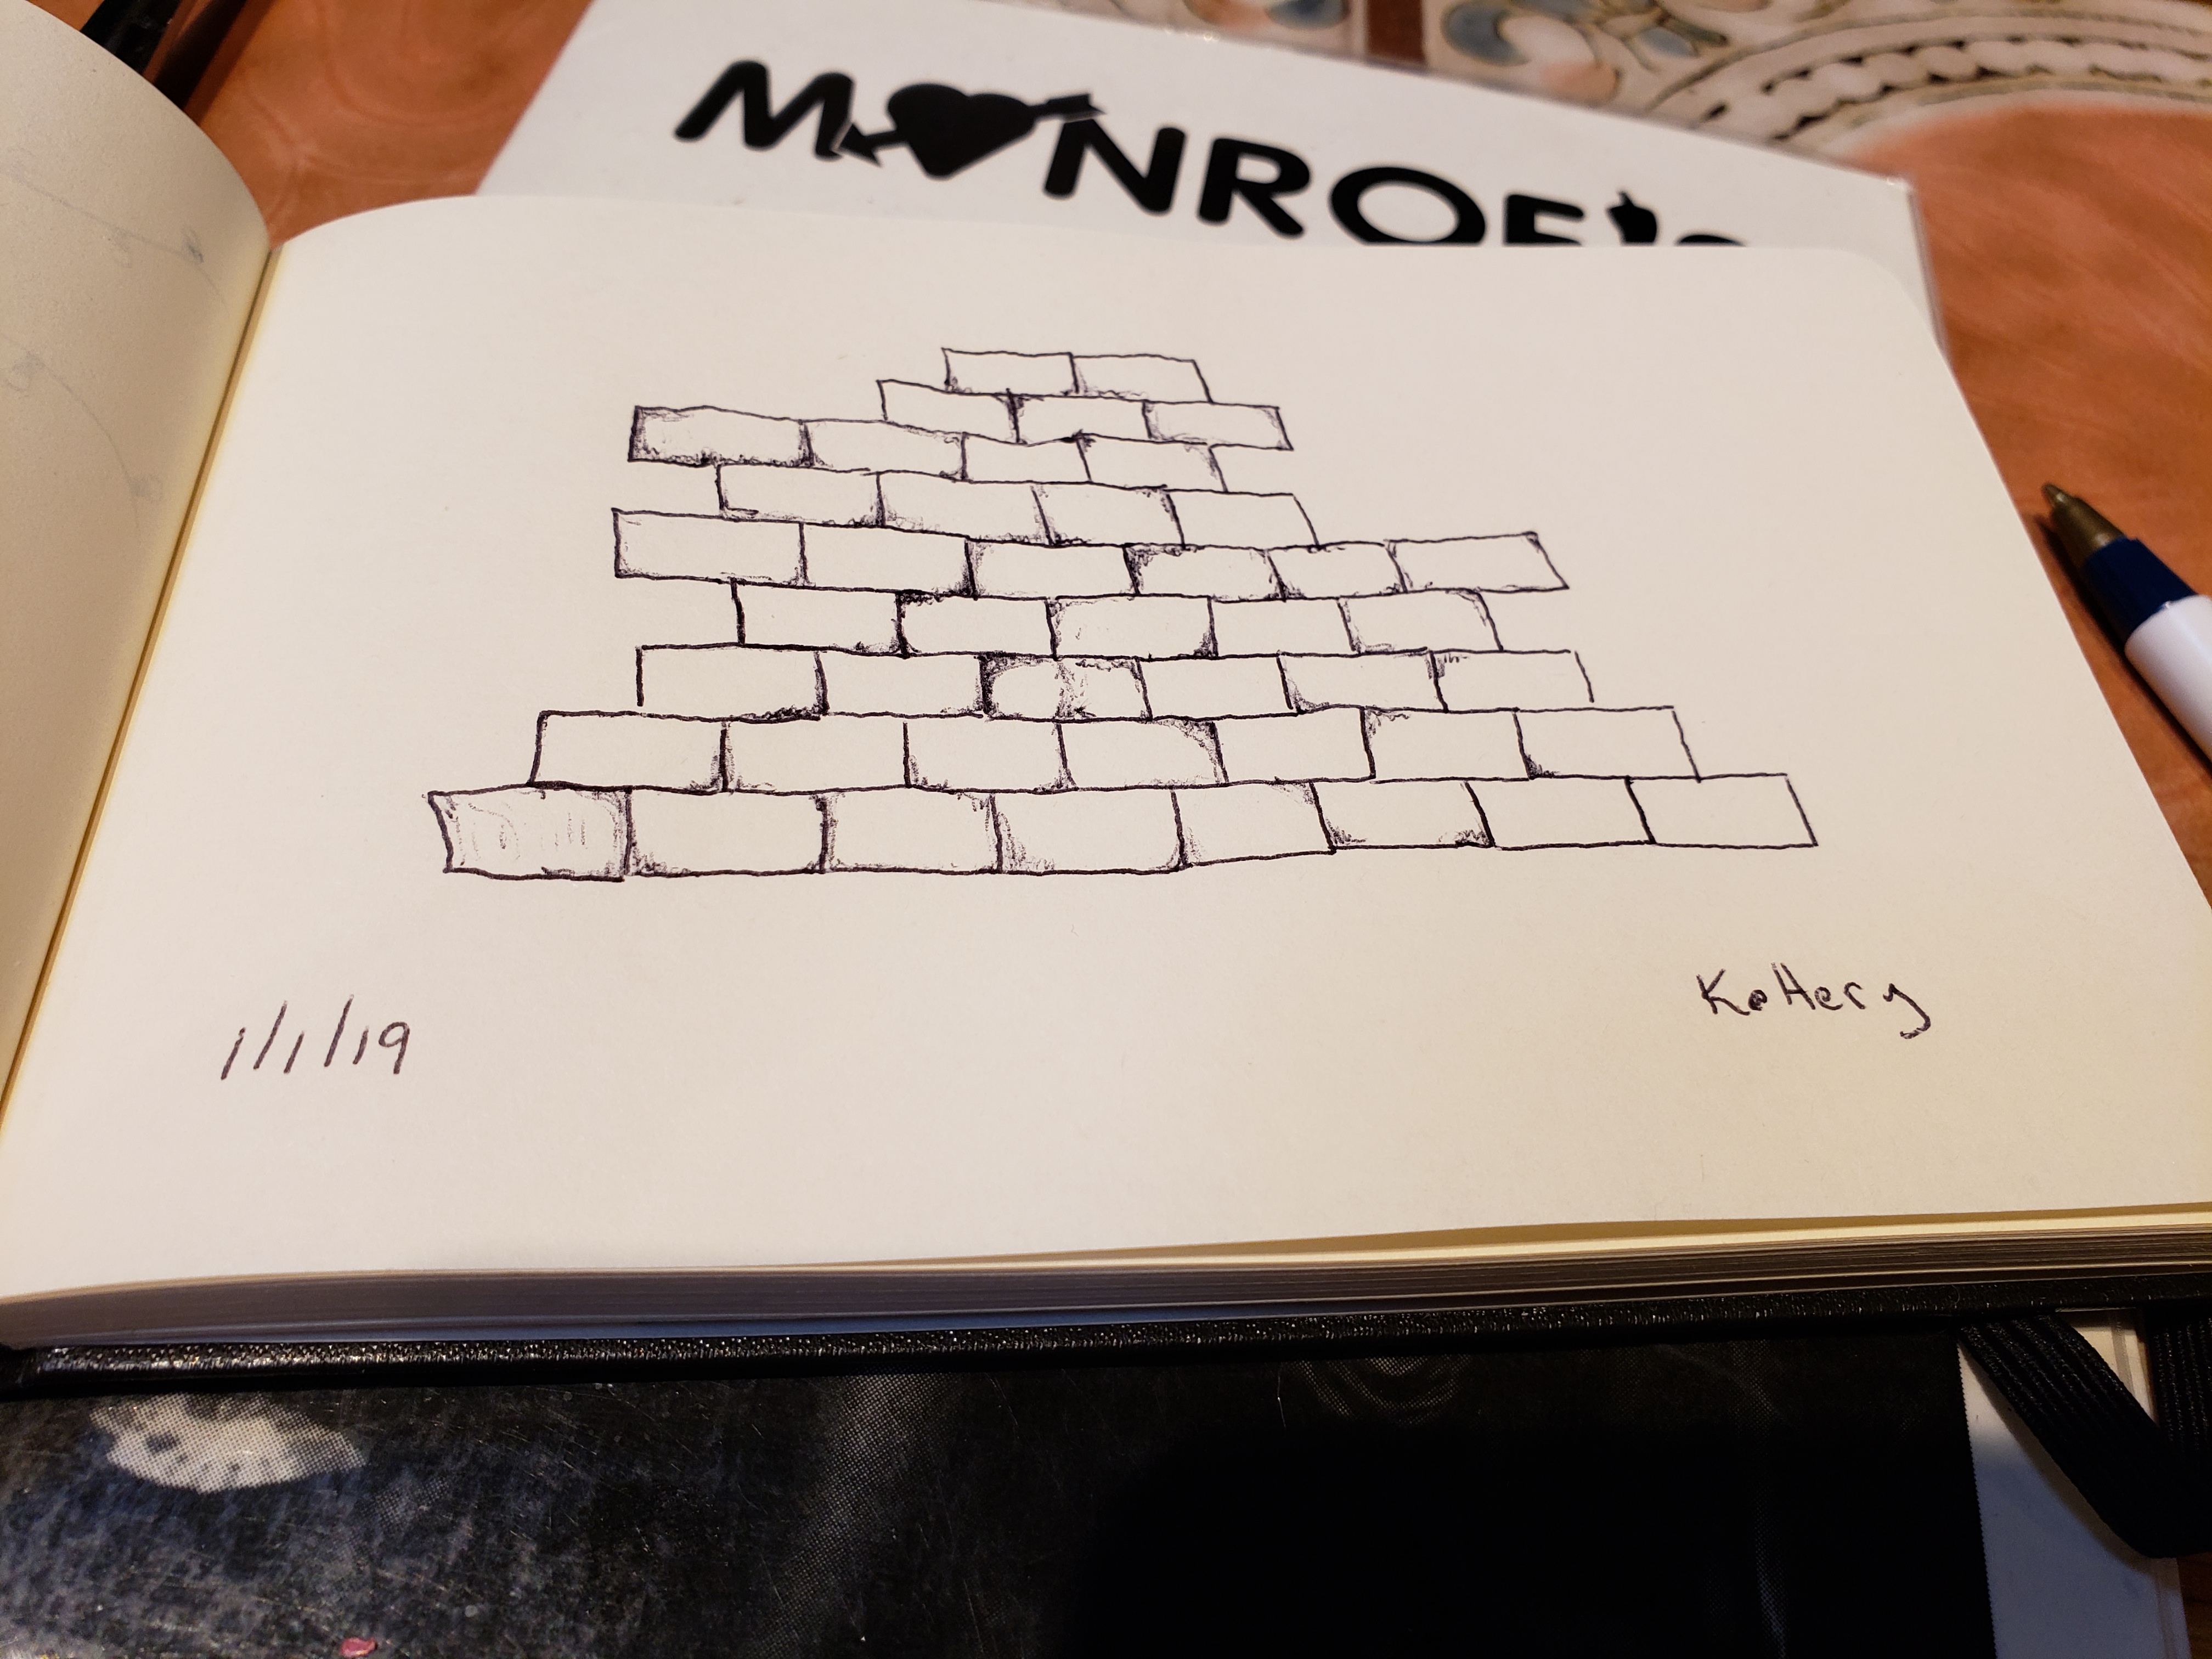 MONROE's
1/1/19
Kettery